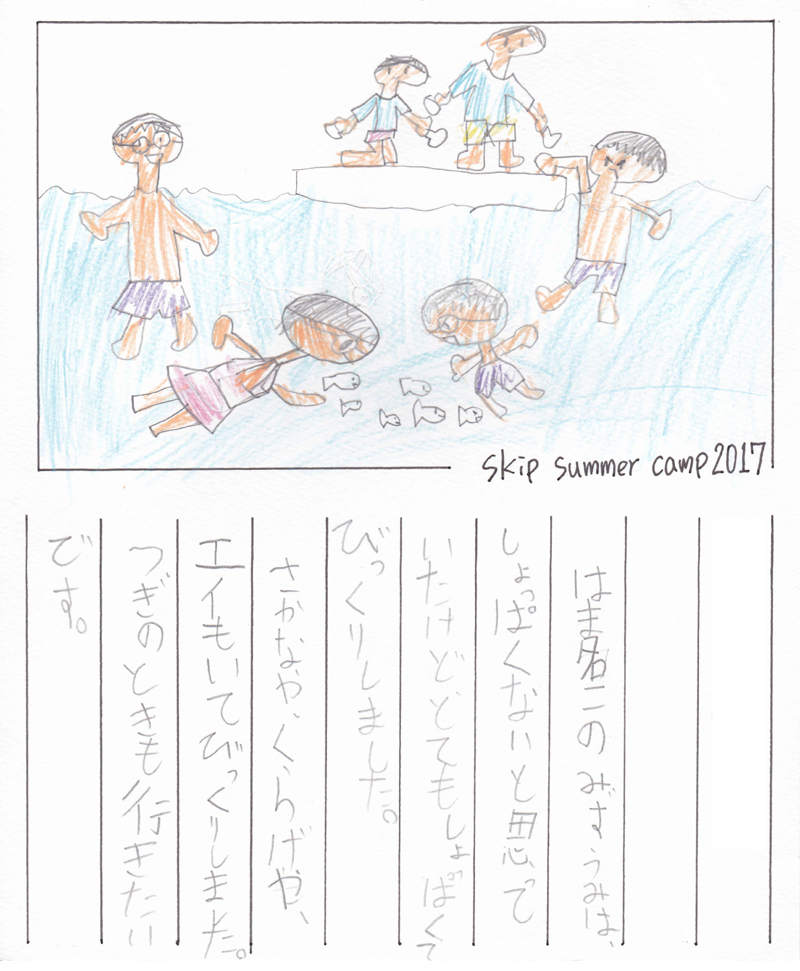 skip summer camp 2017
はま名このみずうみは、
しょっぱくないと思って
いたけどとてもしょぱくて
びっくりしました。
さかなや、くらげや、
エイもいてびっくりしました。
つぎのときも行きたい
です。